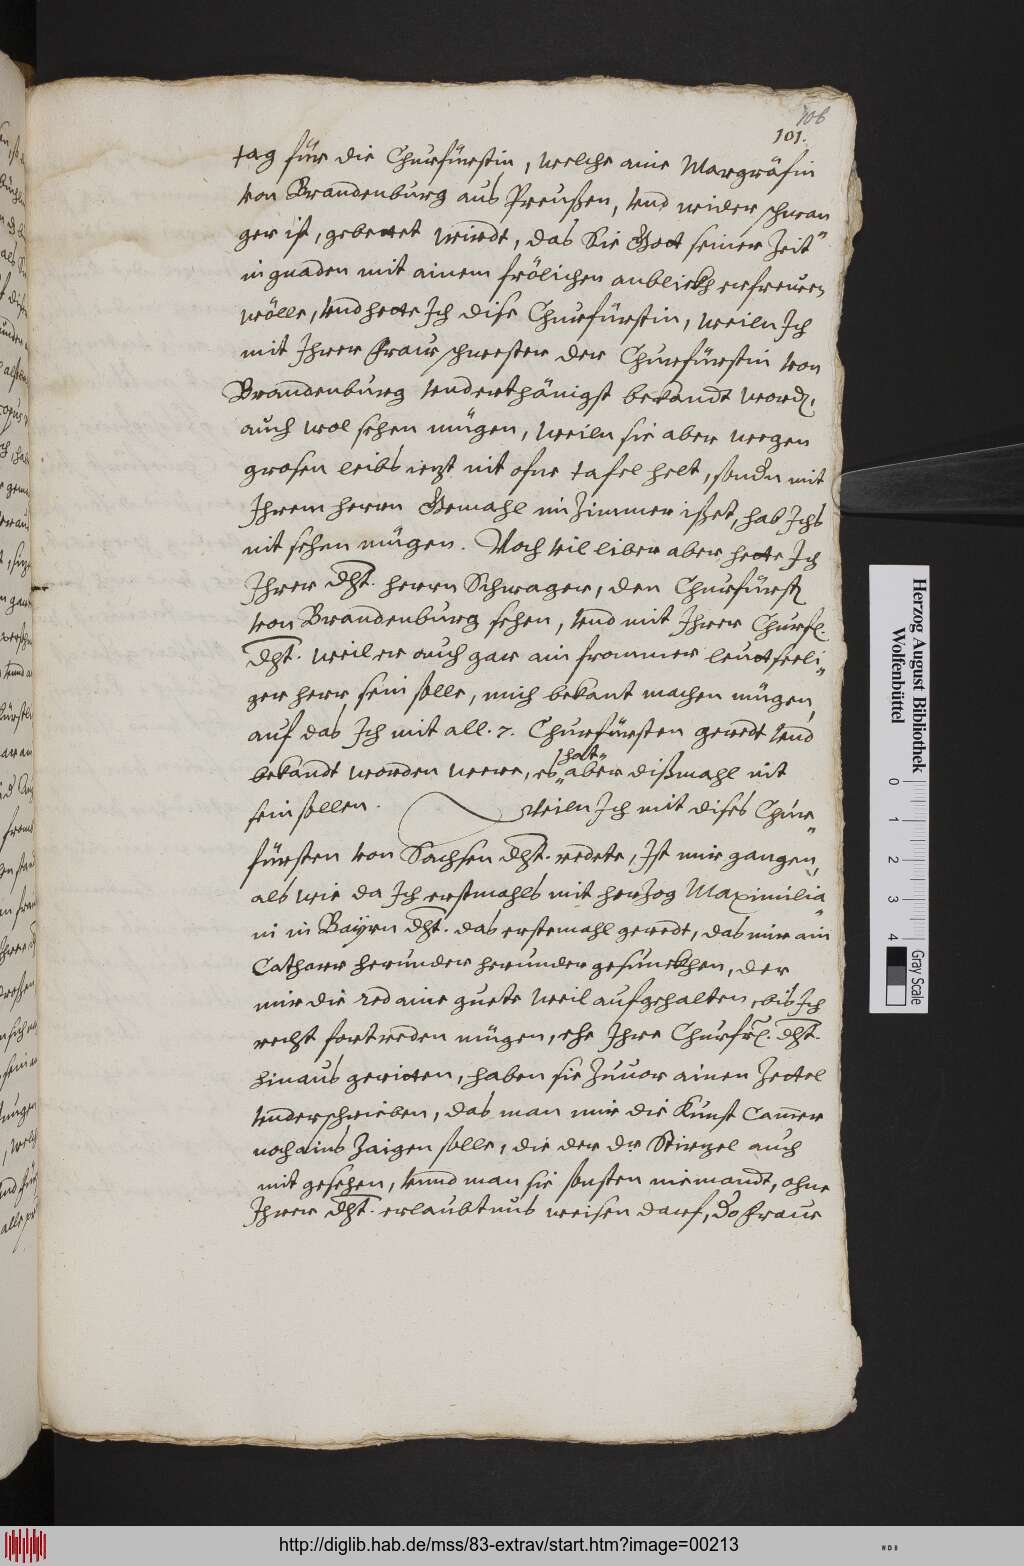 106
101.
tag für die Churfürstin, welche aine Margräfin
von Brandenburg aus Preußen, vnd wider schwan
ger ist, gebettet wirdt, das Sie Gott seiner Zeit
in gnaden mit ainem frölichen anblickh erfreuen
wölle, vnd hette Ich dise Churfürstin, weiln Ich
mit Ihrer fraw schwester der Churfürstin von
Brandenburg vnderthänigst bekandt word,
auch wol sehen mügen, weiln sie aber wegen
grosen leibs iezt nit ofne tafel helt, sondn mit
Ihrem herrn Gemahl im Zimmer ißet, hab Ichs
nit sehen mügen. Noch vil liber aber hette Ich
Ihrer dht. herrn Schwager, den Churfürst
von Brandenburg sehen, vnd mit Ihrer Churfl.
dht. weil er auch gar ain frommer leuttseeli
ger herr sein solle, mich bekant machen mügen,
auf das Ich mit all. 7. Churfürsten geredt vnd
bekandt worden were, es hatt aber dißmahl nit
sein sollen. Weiln Ich mit dises Chur
fürsten von Sachsen dht. redete, Ist mir gangen,
als wie da Ich erstmahls mit herzog Maximilia
ni in Bayrn dht. das erstemahl geredt, das mir ain
Catharr herunder herunder gesunckhen, der
mir die red aine guete weil aufgehalten, bis Ich
recht fortreden mügen, ehe Ihre Churfrl. dht.
hinaus geritten, haben sie Zuuor ainen Zettel
vnderschriben, das man mir die Kunst Camer
noch ains Zaigen solle, die der dr Stirzel auch
mit gesehen, vnnd man sie sonsten niemandt, ohne
Ihrer dht. erlaubtnus weisen darf, Do fraur
Herzog August Bibliothek
Wolfenbüttel
0 1 2 3 4
Gray Scale
http://diglib.hab.de/mss/83-extrav/start.htm?image=00213